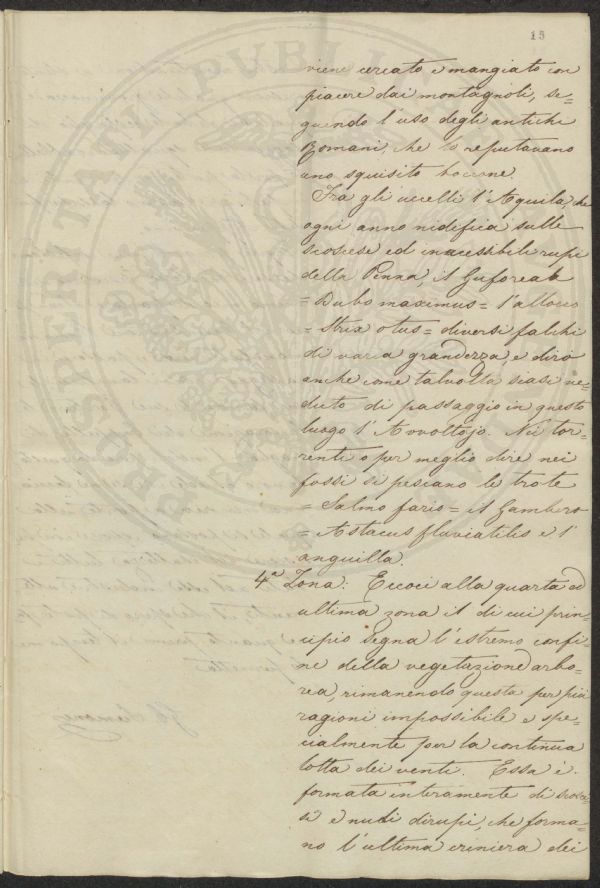 15
viene cercato e mangiato con
piacere dai montagnoli, se=
guendo l'uso degli antichi
Romani, che lo reputavano
uno squisito boccone.
Fra gli uccelli l'Aquila, che
ogni anno nidifica sulle
scoscese ed inacessibili rupi
della Penna, il Guforeale
= Bubo maximus = l'allocco
= Strix otus = diversi falchi
di varia grandezza, e dirò
anche come talvolta siasi ve=
duto di passaggio in questo
luogo l'Avvoltojo. Nei tor=
renti o per meglio dire nei
fossi si pescano le trote
= Salmo fario = il Gambero
= Astacus fluviatilis e l'
anguilla.
4ª Zona: Eccoci alla quarta ed
ultima zona il di cui prin=
cipio segna l'estremo confi=
ne della vegetazione arbo=
rea, rimanendo questa per più
ragioni impossibile e spe=
cialmente per la continua
lotta dei venti. Essa è
formata interamente di scosce=
si e nudi dirupi, che forma=
no l'ultima criniera dei
PROSPERITATI PUBLI